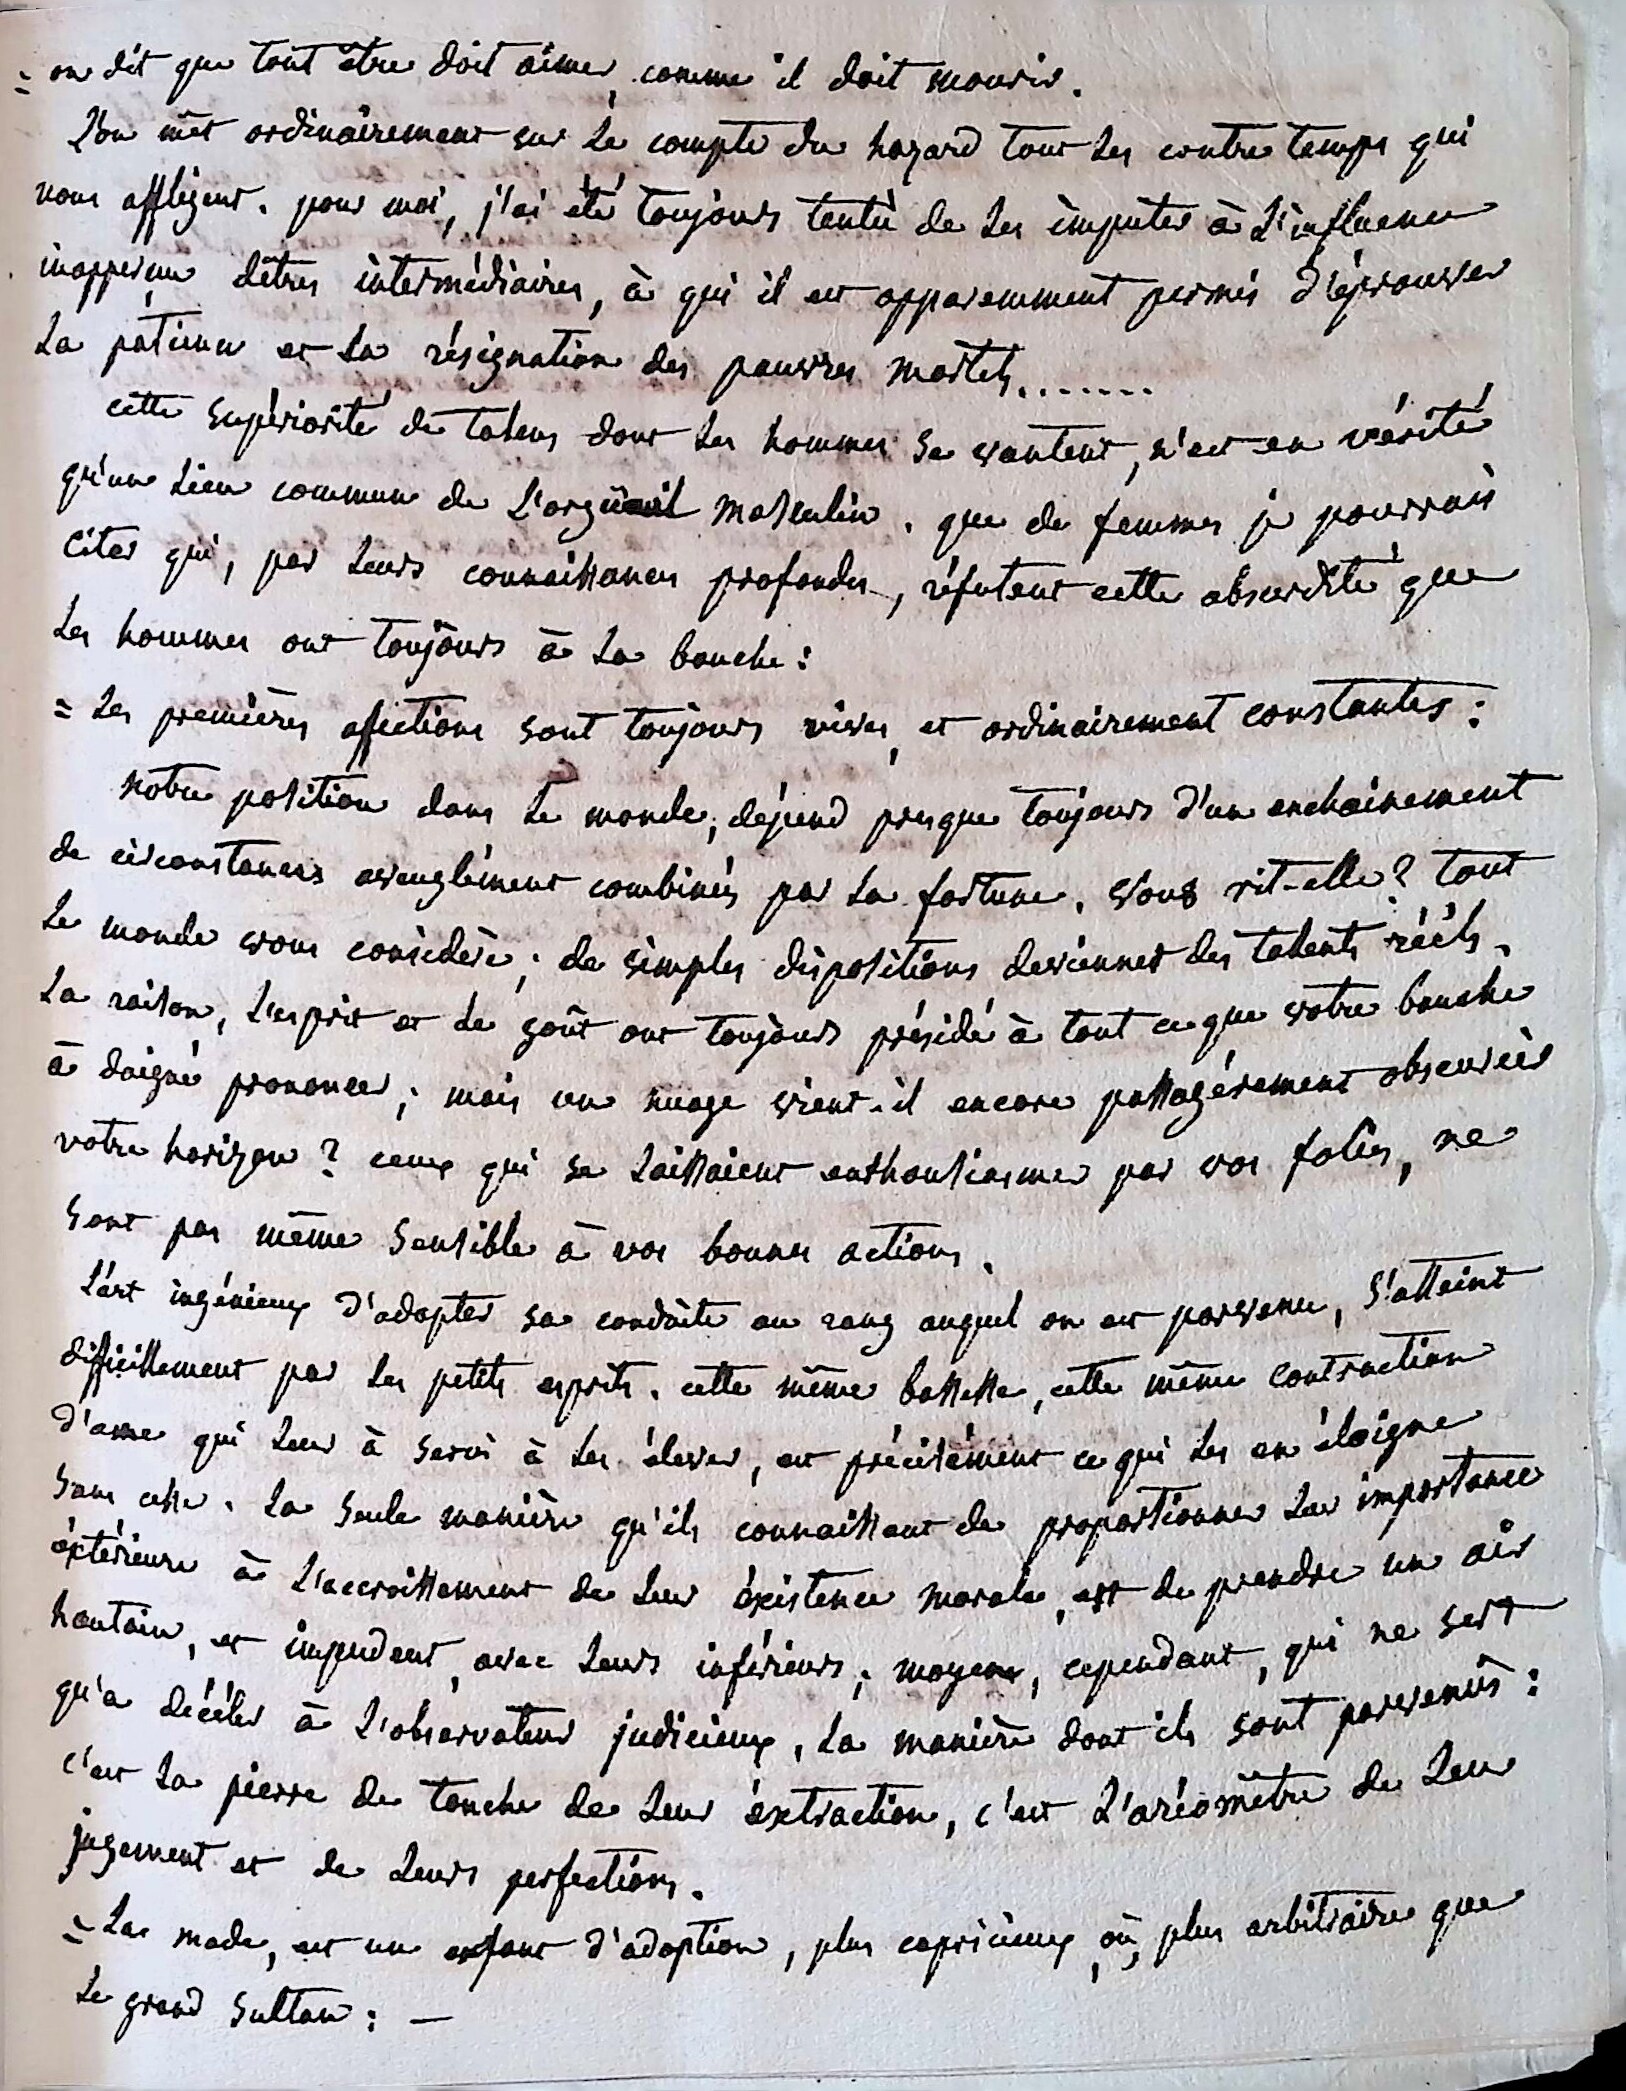 = on dit que tout être doit aimer, comme il doit mourir.
L'on met ordinairement sur le compte du hazard tout les contre temps qui
nous affligent. pour moi, j'ai été toujours tenté de les imputer à l'influence
inapperçue d'êtres intermédiaires, à qui il est apparemment permis d'éprouver
la patience et la résignation des pauvres mortels.......
cette supériorité de talens dont les hommes se vantent, n'est en vérité
qu'un lieu commun de l'orgüeil masculin. que de femmes je pourrais
citer qui, par leurs connaissances profondes, réfutent cette absurdité que
les hommes ont toujours à la bouche :
= les premières affections sont toujours vives, et ordinairement constantes :
Notre position dans le monde, dépend presque toujours d'un enchainement
de circonstances aveuglément combinées par la fortune. vous rit-elle ? tout
le monde vous considère ; de simples dispositions deviennet des talents réèls.
la raison, l'esprit et le goût ont toujours présidé à tout ce que votre bouche
à daigné prononcer ; mais un nuage vient-il encore passagérement obscurcir
votre horizon ? ceux qui se laissaient enthousiasmer par vos folies, ne
sont pas même sensible à vos bonnes actions.
L'art ingénieux d'adapter sa conduite au rang auquel on est parvenu, s'atteint
difficillement par les petits esprits. cette même bassesse, cette même contraction
d'ame qui leur à servi à les élever, est précisément ce qui les en éloigne
sans cesse. la seule manière qu'ils connaissent de proportionner leur importance
éxtérieure à l'accroissement de leur éxistence morale, est de prendre un air
hautain, et impudent, avec leurs inférieurs ; moyens, cependant, qui ne sert
qu'a décéler à l'observateur judicieux, la manière dont ils sont parvenus :
c'est la pierre de touche de leur éxtraction, c'est l'aréomètre de leur
jugement et de leurs perfections.
= La mode, est un enfant d'adoption, plus capricieux, où, plus arbitraire que
le grand Sultan : —